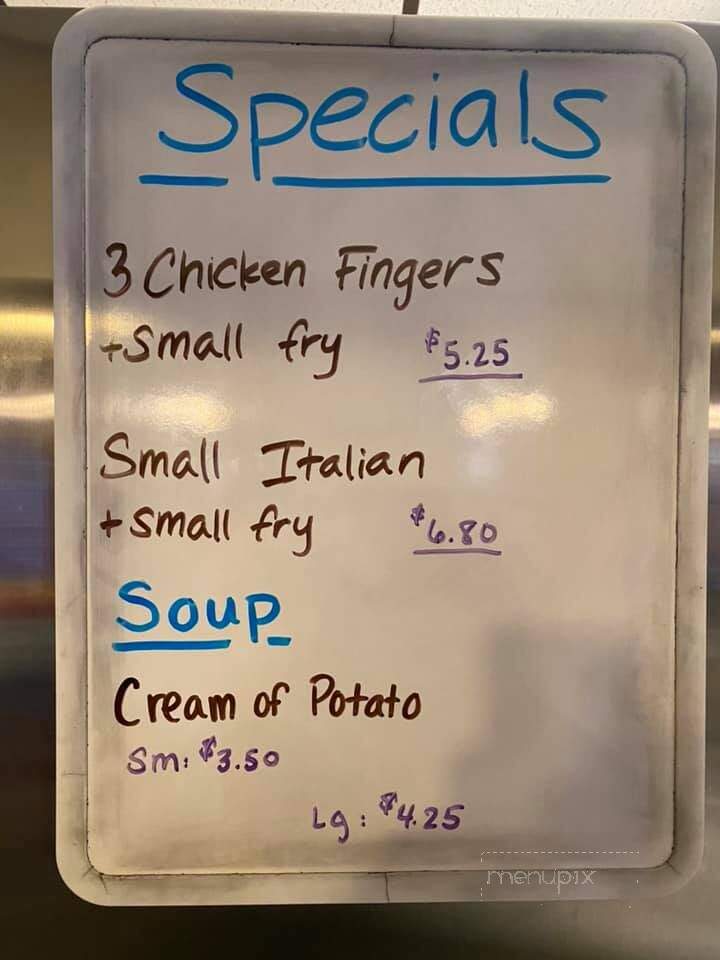 Specials
3 Chicken Fingers
+Small fry $5.25
Small Italian
+ small fry $6.80
Soup
Cream of Potato
Sm: $3.50
Lg: $4.25
menupix